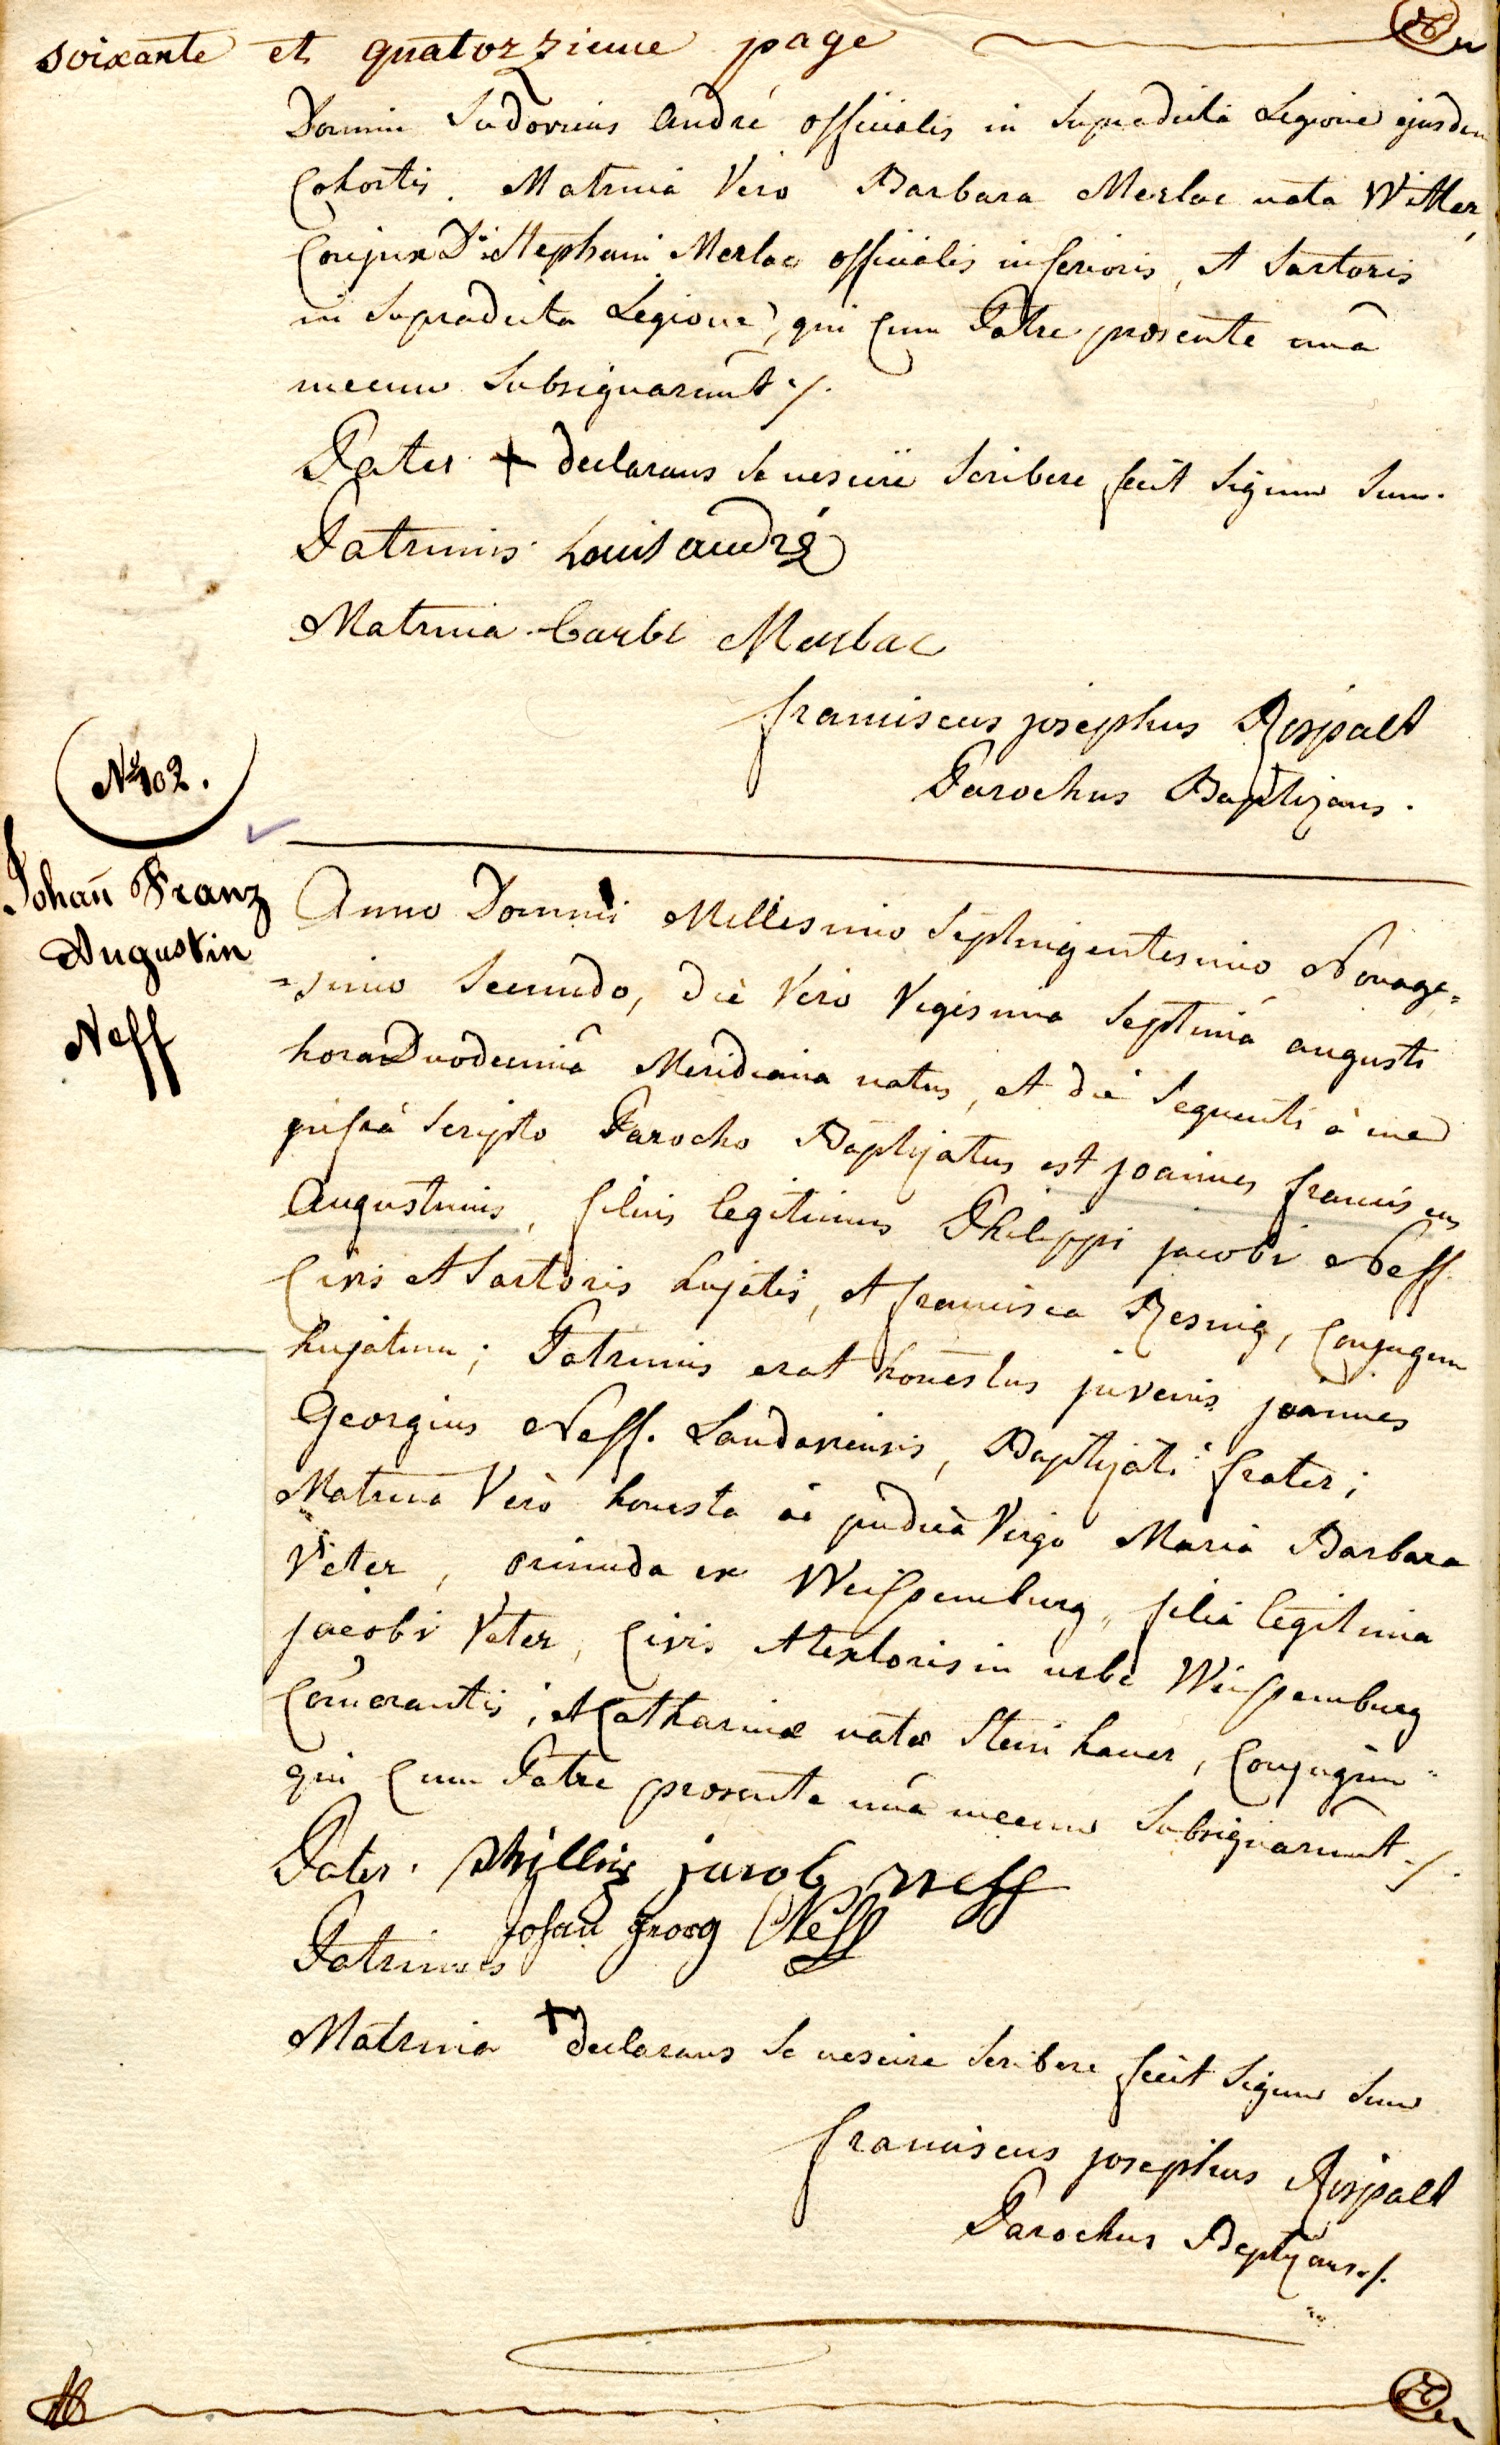 soixante et quatorzieme page
Domin Ludovicus André officialis in supradicta Legione ejusdem
Cohortis. Matrina Vero Barbara Merlac nata Witter,
Conjux D.i Stephani Merlac officialis inferioris, et Sartoris
in supradicta Legione, qui cum Patre praesente unâ
mecum subsignarunt ./.
Pater + declarans se nescire scribere fecit signum suum.
Patrinus Louis andré
Matrina barbe Merlac
franciscus josephus Rospatt
Parochus Baptizans.
No 102.
Johañ Franz
Augustin
Neff
Anno Domini Millesimo Septingentesimo Nonage=
=simo secundo, die Vero Vigesima septima augusti
hora Duodecimâ Meridiana natus, et die sequenti à me
infra scripto Parocho Baptizatus est joannes franciscus
Augustinus, filius legitimus Philippi jacobi Neff
Civis et Sartoris hujatis, et francisca Resnig, Conjugum
hujatum; Patrinus erat honestus juvenis joannes
Georgius Neff. Landaviensis, Baptizati frater;
Matrina Vero honesta ac pudica Virgo Maria Barbara
Veter, oriunda ex Weissemburg, filia legitima
jacobi Veter, Civis et textoris in urbe Weissemburg
Com̃orantis; et Catharinae natae Steinhauer, Conjugum
qui cum Patre praesente unâ mecum subsignarunt ./.
Pater. Phillip jacob neff
Johañ georg Neff
Patrinus
Matrina + declarans se nescire scribere fecit signum suum
franciscus josephus Rospatt
Parochus Baptizans ./.